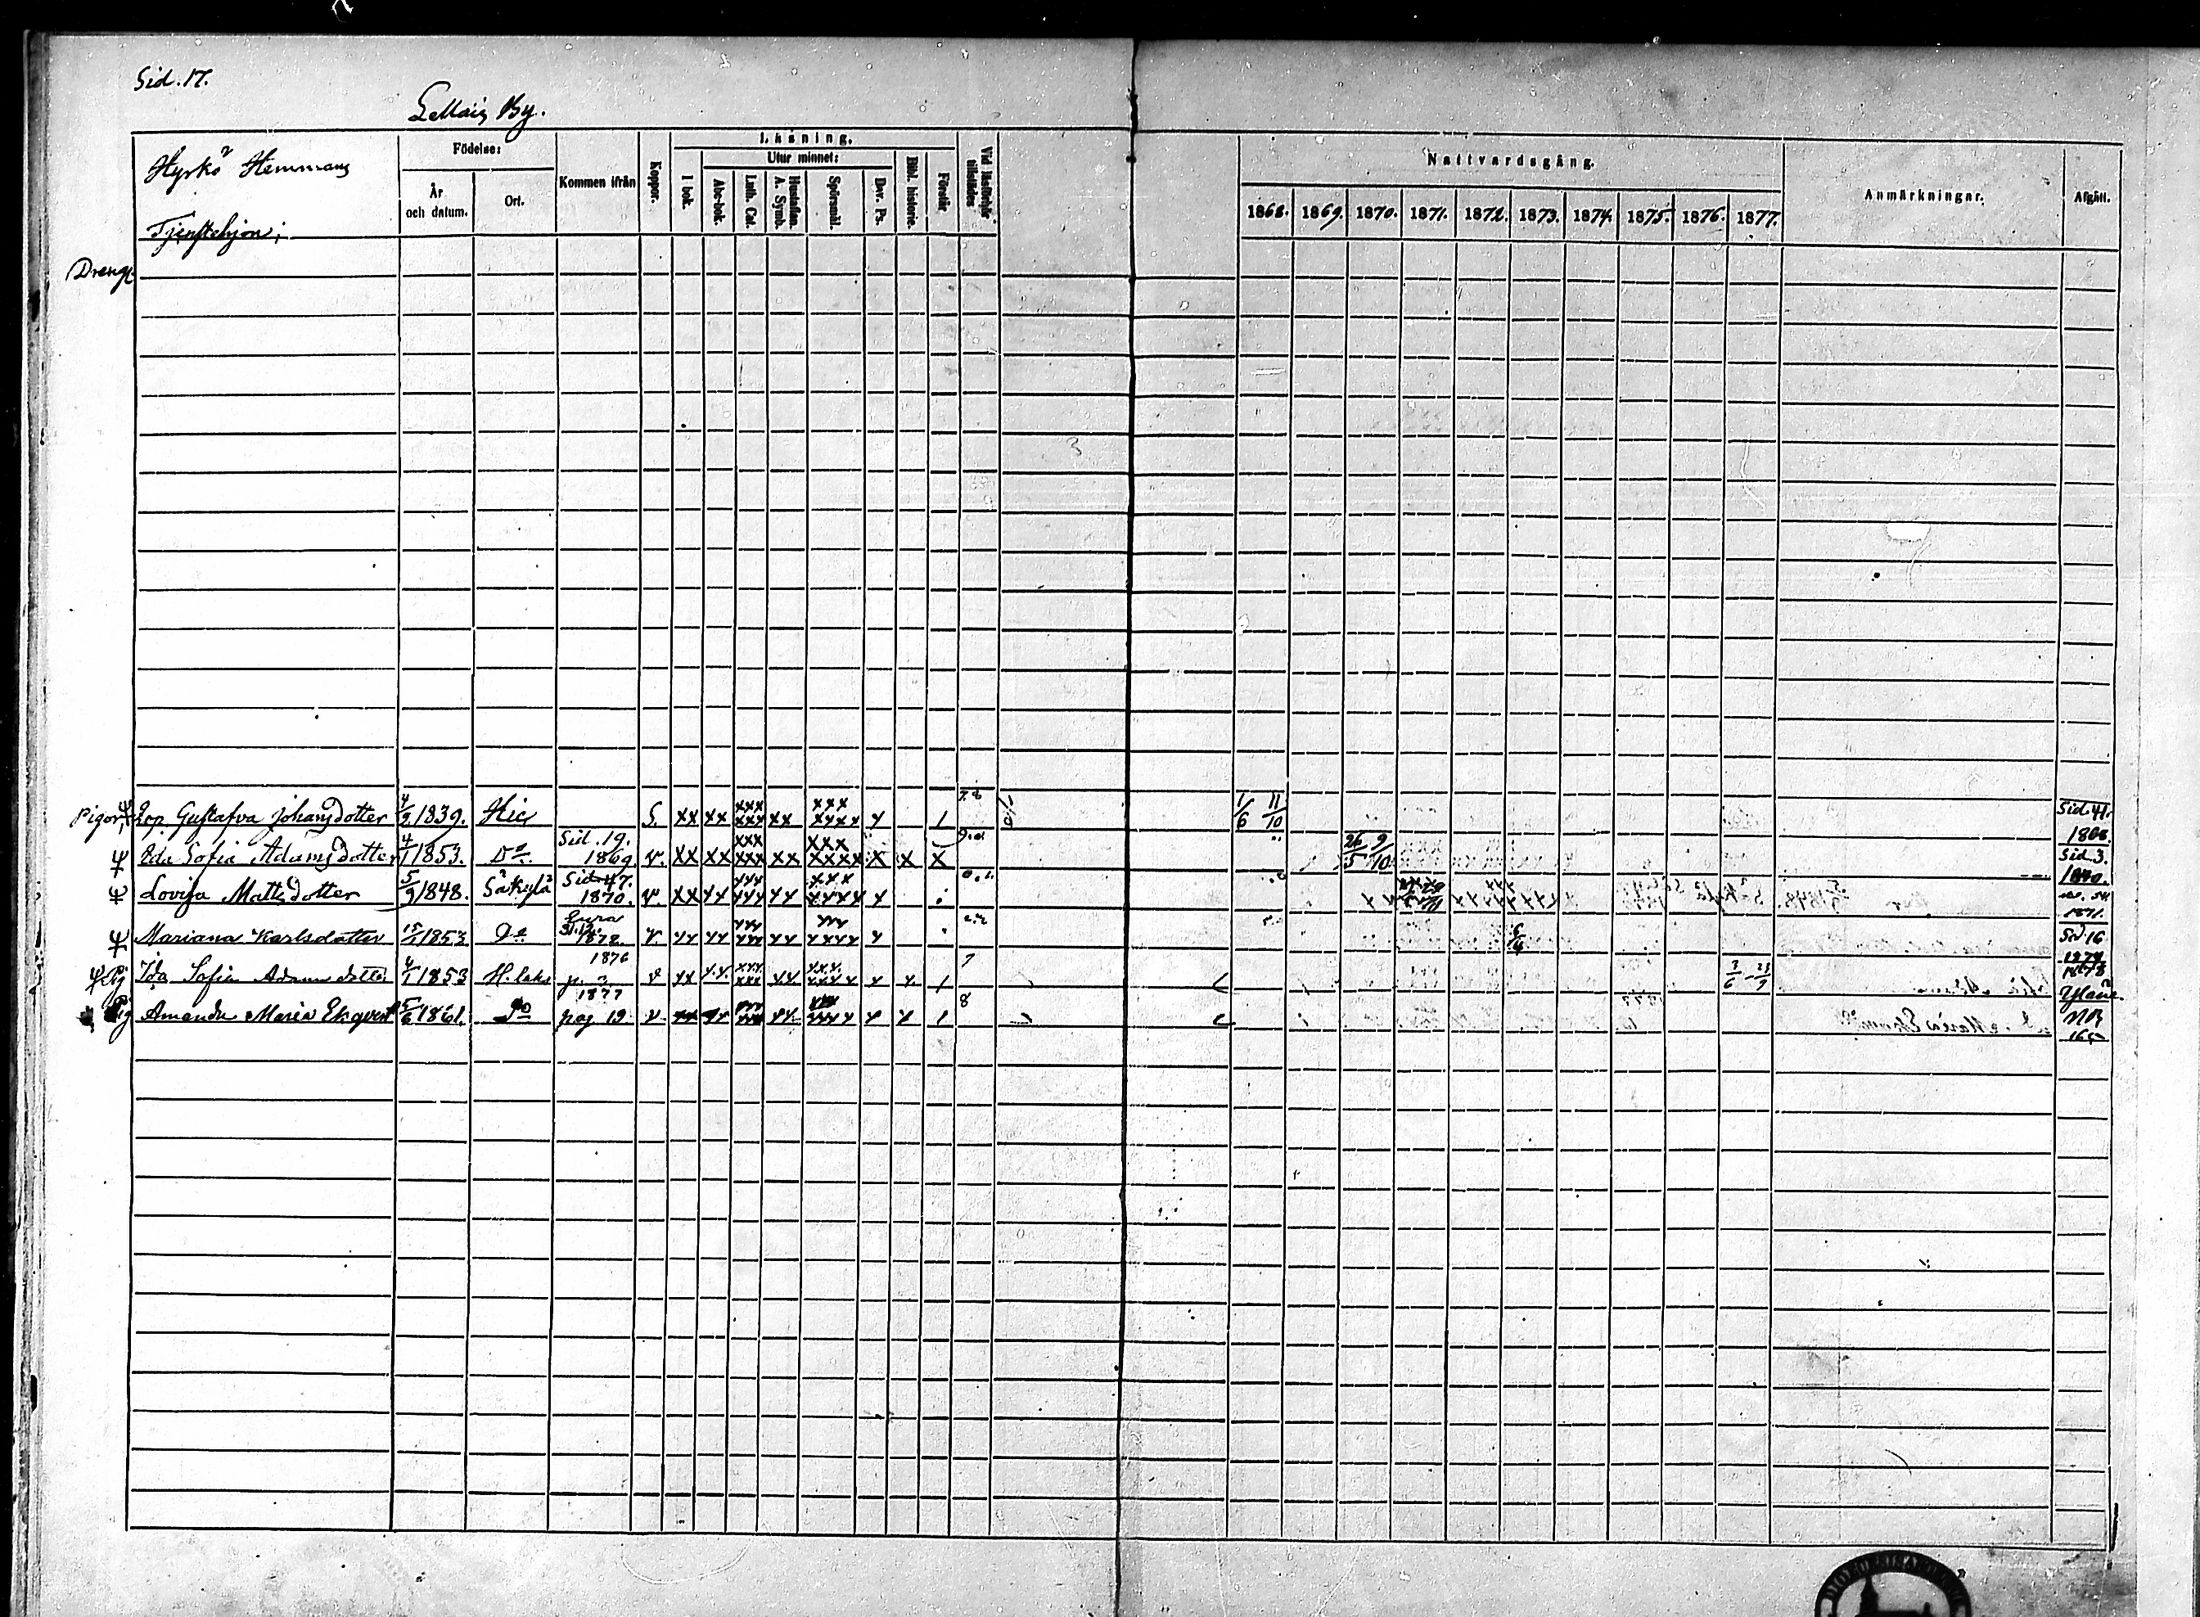 Sid. 17.
By.
Hyrkö Hemmans
Tjenstehjon;
Födelse:
År och datum.
Ort.
Kommen ifrån
Koppor.
Läsning.
I bok.
Utur minnet:
Abc-bok.
Luth. Cat.
Hustaflan. A. Symb.
Spörsmål.
Dav. Ps.
Bibl. historie.
Förstår
Vid läsförhör tillstädes
Nattvardsgång.
1868. 1869. 1870. 1871. 1872. 1873. 1874. 1875. 1876. 1877.
Anmärkningar.
Afgått.
Drengr.
Pigor, Gustafva Johansdotter 4/9 1839. Hic S. xx xx xxx xxx xx xxx xxxx x 1 7.8 1/6 11/10 Sid. 41. 1868.
Ida Sofia Adamsdotter 4/1 1853. Do Sid. 19. 1869 v. xx xx xxx xxx xx xxx xxxx x x x 26/5 9/10 Sid. 3. 1870.
Lovisa Mattsdotter 5/9 1848. Säkylä Sid. 47. 1870. v. xx xx xxx xxx xx xxx xxxx x 1871.
Mariana Karlsdotter 15/1 1853 Do Eura 1872. v. xx xx xxx xxx xx xxx xxxx x 6/4 Sid. 16 1874
Pig Ida Sofia Adamsdotter 4/1 1853 H. laks 1876 v xx xx xxx xxx xx xxx xxxx x x 1 7 3/6 - 23/9 1878
Pig Amanda Maria Ekqvist 5/6 1861. Do 1877 pag 19 v xx xx xxx xxx xx xxx xxxx x x 1 8